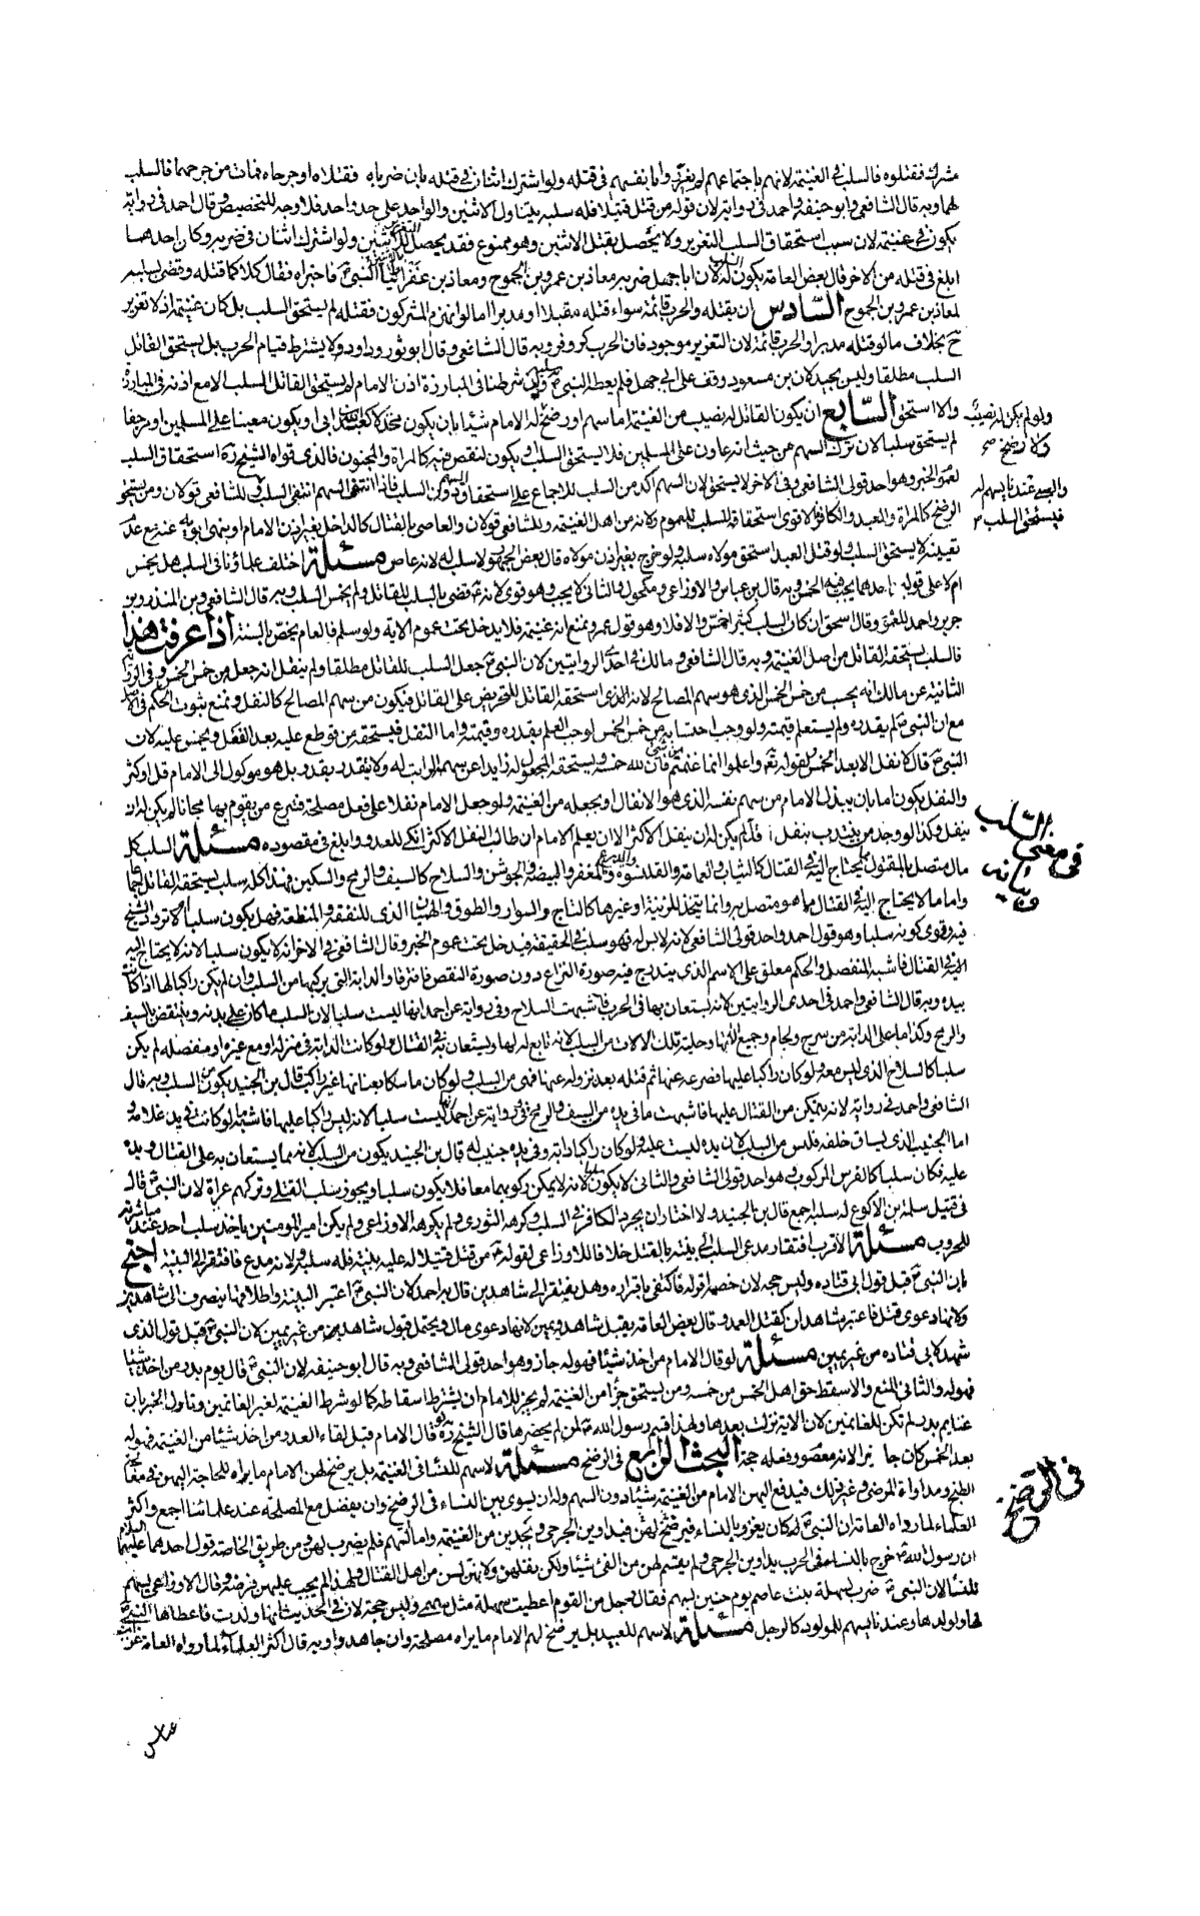 مشرك فقتلوه فالسلب فى الغنيمة لانهم باجتماعهم لم يغرروا بانفسهم فى قتله ولو اشترك اثنان فى قتله بان ضرباه فقتلاه او جرحاه فمات من جرحهما فالسلب
لهما وبه قال الشافعى وابو حنيفة واحمد فى رواية لان قوله من قتل قتيلا فله سلبه يتناول الاثنين والواحد على حد واحد فلا وجه للتخصيص وقال احمد فى رواية
يكون فى غنيمة لان سبب استحقاق السلب التغرير ولا يحصل بقتل الاثنين وهو ممنوع فقد يحصل التغرير بالاثنين ولو اشترك اثنان فى ضربه وكان احدهما
ابلغ فى قتله من الاخر قال بعض العامة يكون السلب له لان ابا جهل ضربه معاذ بن عمرو بن الجموح ومعاذ بن عفراء واتيا النبى ص فاخبراه فقال كلاكما قتله وقضى بسلبه
لمعاذ بن عمرو بن الجموح السادس ان يقتله والحرب قائمة سواء قتله مقبلا او مدبرا اما لو انهزم المشركون فقتله لم يستحق السلب بل كان غنيمة اذ لا تغرير
ح بخلاف ما لو قتله مدبرا والحرب قائمة لان التغرير موجود فان الحرب كر وفر وبه قال الشافعى وقال ابو ثور وداود ولا يشترط قيام الحرب بل يستحق القاتل
السلب مطلقا وليس بجيد لان بن مسعود وقف على ابى جهل فلم يعطه النبى ص سلبه شرطنا فى المبارزة اذن الامام لم يستحق القاتل السلب الا مع اذنه فى المبارزة
والا استحق السابع ان يكون القاتل له نصيب من الغنيمة اما سهم او رضخ لو له الامام شيئا بان يكون مخذلا كعبد الله بن ابى او يكون معينا على المسلمين او مرجفا
ولو لم يكن له نصيب
ولا رضخ
لم يستحق سلبا لان ترك السهم من حيث انه عاون على المسلمين فلا يستحق السلب ولو يكون لنقص فيه كالمراة والمجنون فالذى قواه الشيخ ره استحقاق السلب
لعموم الخبر وهو احد قولى الشافعى وفى الاخر لا يستحق لان السهم اكد من السلب للاجماع على استحقاق السهم دون السلب فاذا انتفى السهم انتفى السلب وللشافعى قولان ومن يستحق
والصبى عندنا يسهم له
فيستحق السلب
الرضخ كالمراة والعبد والكافر الاقوى استحقاقه للسلب للعموم ولانه من اهل الغنيمة وللشافعى قولان والعاصى بالقتال كالداخل بغير اذن الامام او ينهى ابويه عنه مع عدم
تعيينه لا يستحق السلب ولو قتل العبد استحق مولاه سلبه ولو خرج بغير اذن مولاه قال بعض الجمهور لا سلب له لانه عاص مسئلة اختلف علماؤنا فى السلب هل يخمس
ام لا على قولين احدهما يجب فيه الخمس وبه قال بن عباس والاوزاعى ومكحول والثانى لا يجب وهو قوى لانه ع قضى بالسلب للقاتل ولم يخمس السلب وبه قال الشافعى وبن المنذر وبن
جرير واحمد للعموم وقال اسحق ان كان السلب كثيرا خمس والا فلا وهو قول عمر ونمنع انه غنيمة فلا يدخل تحت عموم الاية ولو سلم فالعام يخص بالسنة اذا عرفت هذا
فالسلب يستحقه القاتل من اصل الغنيمة وبه قال الشافعى ومالك فى احدى الروايتين لان النبى ص جعل السلب للقاتل مطلقا ولم ينقل انه جعل من خمس الخمس وفى الرواية
الثانية عن مالك انه يحسب من خمس الخمس الذى هو سهم المصالح لانه الذى استحقه القاتل للتحريض على القتال فيكون من سهم المصالح كالنفل ونمنع ثبوت الحكم فى الاصل
مع ان النبى ص لم يقدره ولم يستعلم قيمته ولو وجب احتسابه من خمس الخمس لوجب العلم بقدره وقيمته واما النفل فيستحقه من قوطع عليه بعد الفعل ويخمس عليه لان
النبى ص قال لا نفل الا بعد الخمس ولقوله تع واعلموا انما غنمتم من شئ فان لله خمسه ويستحقه المجعول له زايدا عن سهم الراتب له ولا يقدر بقدر بل هو موكول الى الامام قل او كثر
والنفل يكون اما بان يبذل الامام من سهم نفسه الذى هو الانفال او يجعله من الغنيمة ولو جعل الامام نفلا على فعل مصلحة فتبرع من يقوم بها مجانا لم يكن له ان
ينفل وكذا لو وجد من ينتدب بنفل اقل لم يكن له ان ينفل الاكثر الا ان يعلم الامام ان طالب النفل الاكثر انكى للعدو وابلغ فى مقصوده مسئلة السلب كل
فى معنى السلب
وبيانه
مال متصل بالمقتول يحتاج اليه فى القتال كالثياب والعمامة والقلنسوة والدرع والمغفر والبيضة والجوشن والسلاح كالسيف والرمح والسكين فهذا كله سلب يستحقه القاتل اجماعا
واما ما لا يحتاج اليه فى القتال مما هو متصل به وانما يتخذ للزينة او غيرها كالتاج والسوار والطوق والهميان الذى للنفقة والمنطقة فهل يكون سلبا ام لا تردد الشيخ
فيه وقوى كونه سلبا وهو قول احمد واحد قولى الشافعى لانه لابس له فهو سلب فى الحقيقة فيدخل تحت عموم الخبر وقال الشافعى فى الاخر انه لا يكون سلبا لانه لا يحتاج اليه
فى القتال فاشبه المنفصل والحكم معلق على الاسم الذى يندرج فيه صورة النزاع دون صورة النقض فافترقا والدابة التى يركبها من السلب وان لم يكن راكبا لها اذا كانت
بيده وبه قال الشافعى واحمد فى احدى الروايتين لانه يستعان بها فى الحرب فاشبهت السلاح وفى رواية عن احمد انها ليست سلبا لان السلب ما كان على بدنه وينتقض بالسيف
والرمح وكذا ما على الدابة من سرج ولجام وجميع الاتها وحلية تلك الالات من السلب لانه تابع لها ويستعان به فى القتال ولو كانت الدابة فى منزله او مع غيره او منفصله لم يكن
سلبا كالسلاح الذى ليس معه ولو كان راكبا عليها فصرعه عنها ثم قتله بعد نزوله عنها فهى من السلب ولو كان ماسكا بعنانها غير راكب قال بن الجنيد يكون من السلب وبه قال
الشافعى واحمد فى رواية لانه يتمكن من القتال عليها فاشبهت ما فى يده من السيف والرمح وفى رواية عن احمد انها ليست سلبا لانه ليس راكبا عليها فاشبه لو كانت فى يد غلامه و
اما الجنيب الذى يساق خلفه فليس من السلب لان يده ليست عليه ولو كان راكبا دابة وفى يده جنيب له قال بن الجنيد يكون من السلب لانه مما يستعان به على القتال ويده
عليه فكان سلبا كالفرس المركوب وهو احد قولى الشافعى والثانى لا يكون سلبا لانه لا يمكن ركوبهما معا فلا يكون سلبا ويجوز سلب القتلى وتركهم عراة لان النبى ص قال
فى قتيل سلمة بن الاكوع له سلبه اجمع قال بن الجنيد ولا اختار ان يجرد الكافر فى السلب وكرهه الثورى ولم يكرهه الاوزاعى ولم يكن امير المؤمنين ع ياخذ سلب احد عند مباشرته
للحروب مسئلة الاقرب افتقار مدعى السلب الى بينة بالقتل خلافا للاوزاعى لقوله ع من قتل قتيلا له عليه بينة فله سلبه ولانه مدع فافتقر الى البينة احتج
بان النبى ص قبل قول ابى قتادة وليس حجة لان خصمه اقر له فاكتفى باقراره وهل يفتقر الى شاهدين قال به احمد لان النبى ص اعتبر البينة واطلاقها ينصرف الى شاهدين
ولانها دعوى قتل فاعتبر شاهدان كقتل العمد وقال بعض العامة يقبل شاهد ويمين لانها دعوى مال ويحتمل قبول شاهد من غير يمين لان النبى ص قبل قول الذى
شهد لابى قتادة من غير يمين مسئلة لو قال الامام من اخذ شيئا فهو له جاز وهو احد قولى الشافعى وبه قال ابو حنيفة لان النبى ص قال يوم بدر من اخذ شيئا
فهو له والثانى المنع والا سقط حق اهل الخمس من خمسه ومن يستحق جزأ من الغنيمة لم يجز للامام ان يشترط اسقاطه كما لو شرط الغنيمة لغير الغانمين وتاول الخبر بان
غنايم بدر لم تكن للغانمين لان الاية نزلت بعدها ولهذا قسم رسول الله ص لمن لم يحضرها قال الشيخ ره لو قال الامام قبل لقاء العدو من اخذ شيئا من الغنيمة فهو له
بعد الخمس كان جايزا لانه معصوم وفعله حجة البحث الرابع فى الرضخ مسئلة لا سهم للنساء فى الغنيمة بل يرضخ لهن الامام ما يراه للحاجة اليهن فى معالجة
فى الرضخ
الطبخ ومداواة المرضى وغير ذلك فيدفع اليهن الامام من الغنيمة شيئا دون السهم وله ان يسوى بين النساء فى الرضخ وان يفضل مع المصلحة عند علمائنا اجمع واكثر
العلماء لما رواه العامة ان النبى ص كان يغزو بالنساء فيرضخ لهن فيداوين الجرحى ويحذين من الغنيمة واما سهم فلم يضرب لهن ومن طريق الخاصة قول احدهما عليهما السلام
ان رسول الله ص خرج بالنساء فى الحرب يداوين الجرحى ولم يقسم لهن من الفئ شيئا ولكن نفلهن ولانهن ليس من اهل القتال ولهذا لم يجب عليهن فرضه وقال الاوزاعى يسهم
للنساء لان النبى ص ضرب لسهلة بنت عاصم يوم حنين بسهم فقال رجل من القوم اعطيت سهلة مثل سهمى وليس حجة لان فى الحديث انها ولدت فاعطاها النبى ص
لها ولولدها وعندنا يسهم للمولود كالرجل مسئلة لا سهم للعبيد بل يرضخ لهم الامام ما يراه مصلحة وان جاهدوا وبه قال اكثر العلماء لما رواه العامة عن